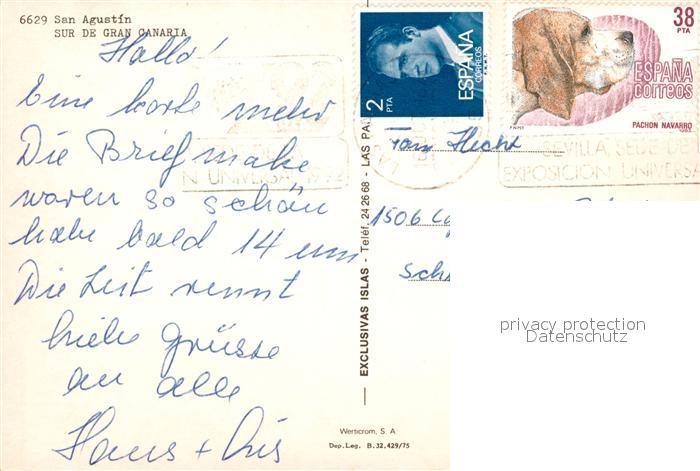 6629 San Agustín
SUR DE GRAN CANARIA
Hallo!
Eine Karte mehr
Die Briefmake
waren so schön
habe bald 14 um
Die Zeit rennt
liebe Grüsse
an alle
Hans + Cris
EXCLUSIVAS ISLAS - Teléf. 24 26 68 - LAS PA
Werticrom, S. A
Dep. Leg. B. 32,429/75
2
PTA
ESPAÑA
CORREOS
38
PTA
ESPAÑA
correos
PACHON NAVARRO
F.N.M.T.
1983
N UNIVERSA 1992
SEVILLA SEDE DE
EXPOSICIÓN UNIVERSA
Fam Hecht
1506
Sch
privacy protection
Datenschutz